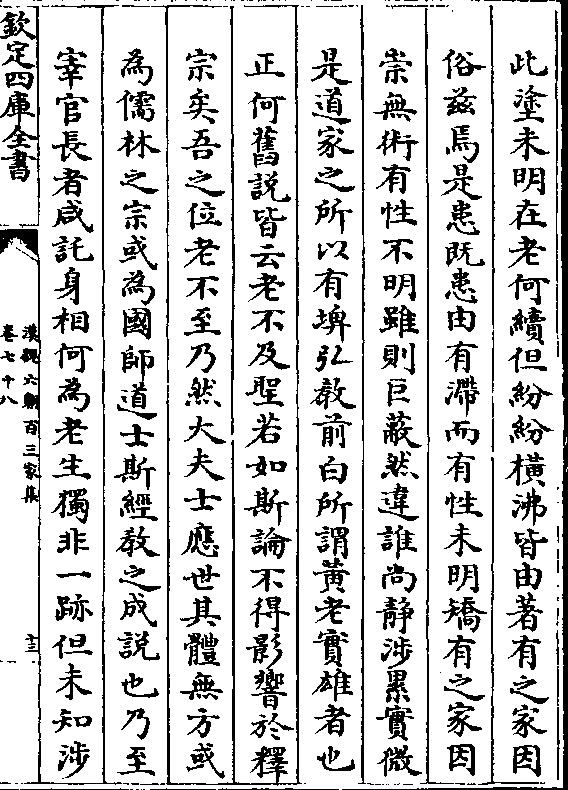 此塗未明在老何續但紛紛橫沸皆由著有之家因
俗兹焉是患既患由有滯而有性未明矯有之家因
崇無術有性不明雖則巨蔽然違誰尚静涉累實微
是道家之所以有埤弘教前白所謂黄老實雄者也
正何舊說皆云老不及聖若如斯論不得影響於釋
宗矣吾之位老不至乃然大夫士應世其體無方或
為儒林之宗或為國師道士斯經教之成說也乃至
宰官長者咸託身相何為老生獨非一跡但未知涉
欽定四庫全書
漢魏六朝百三家集
卷七十八
十三